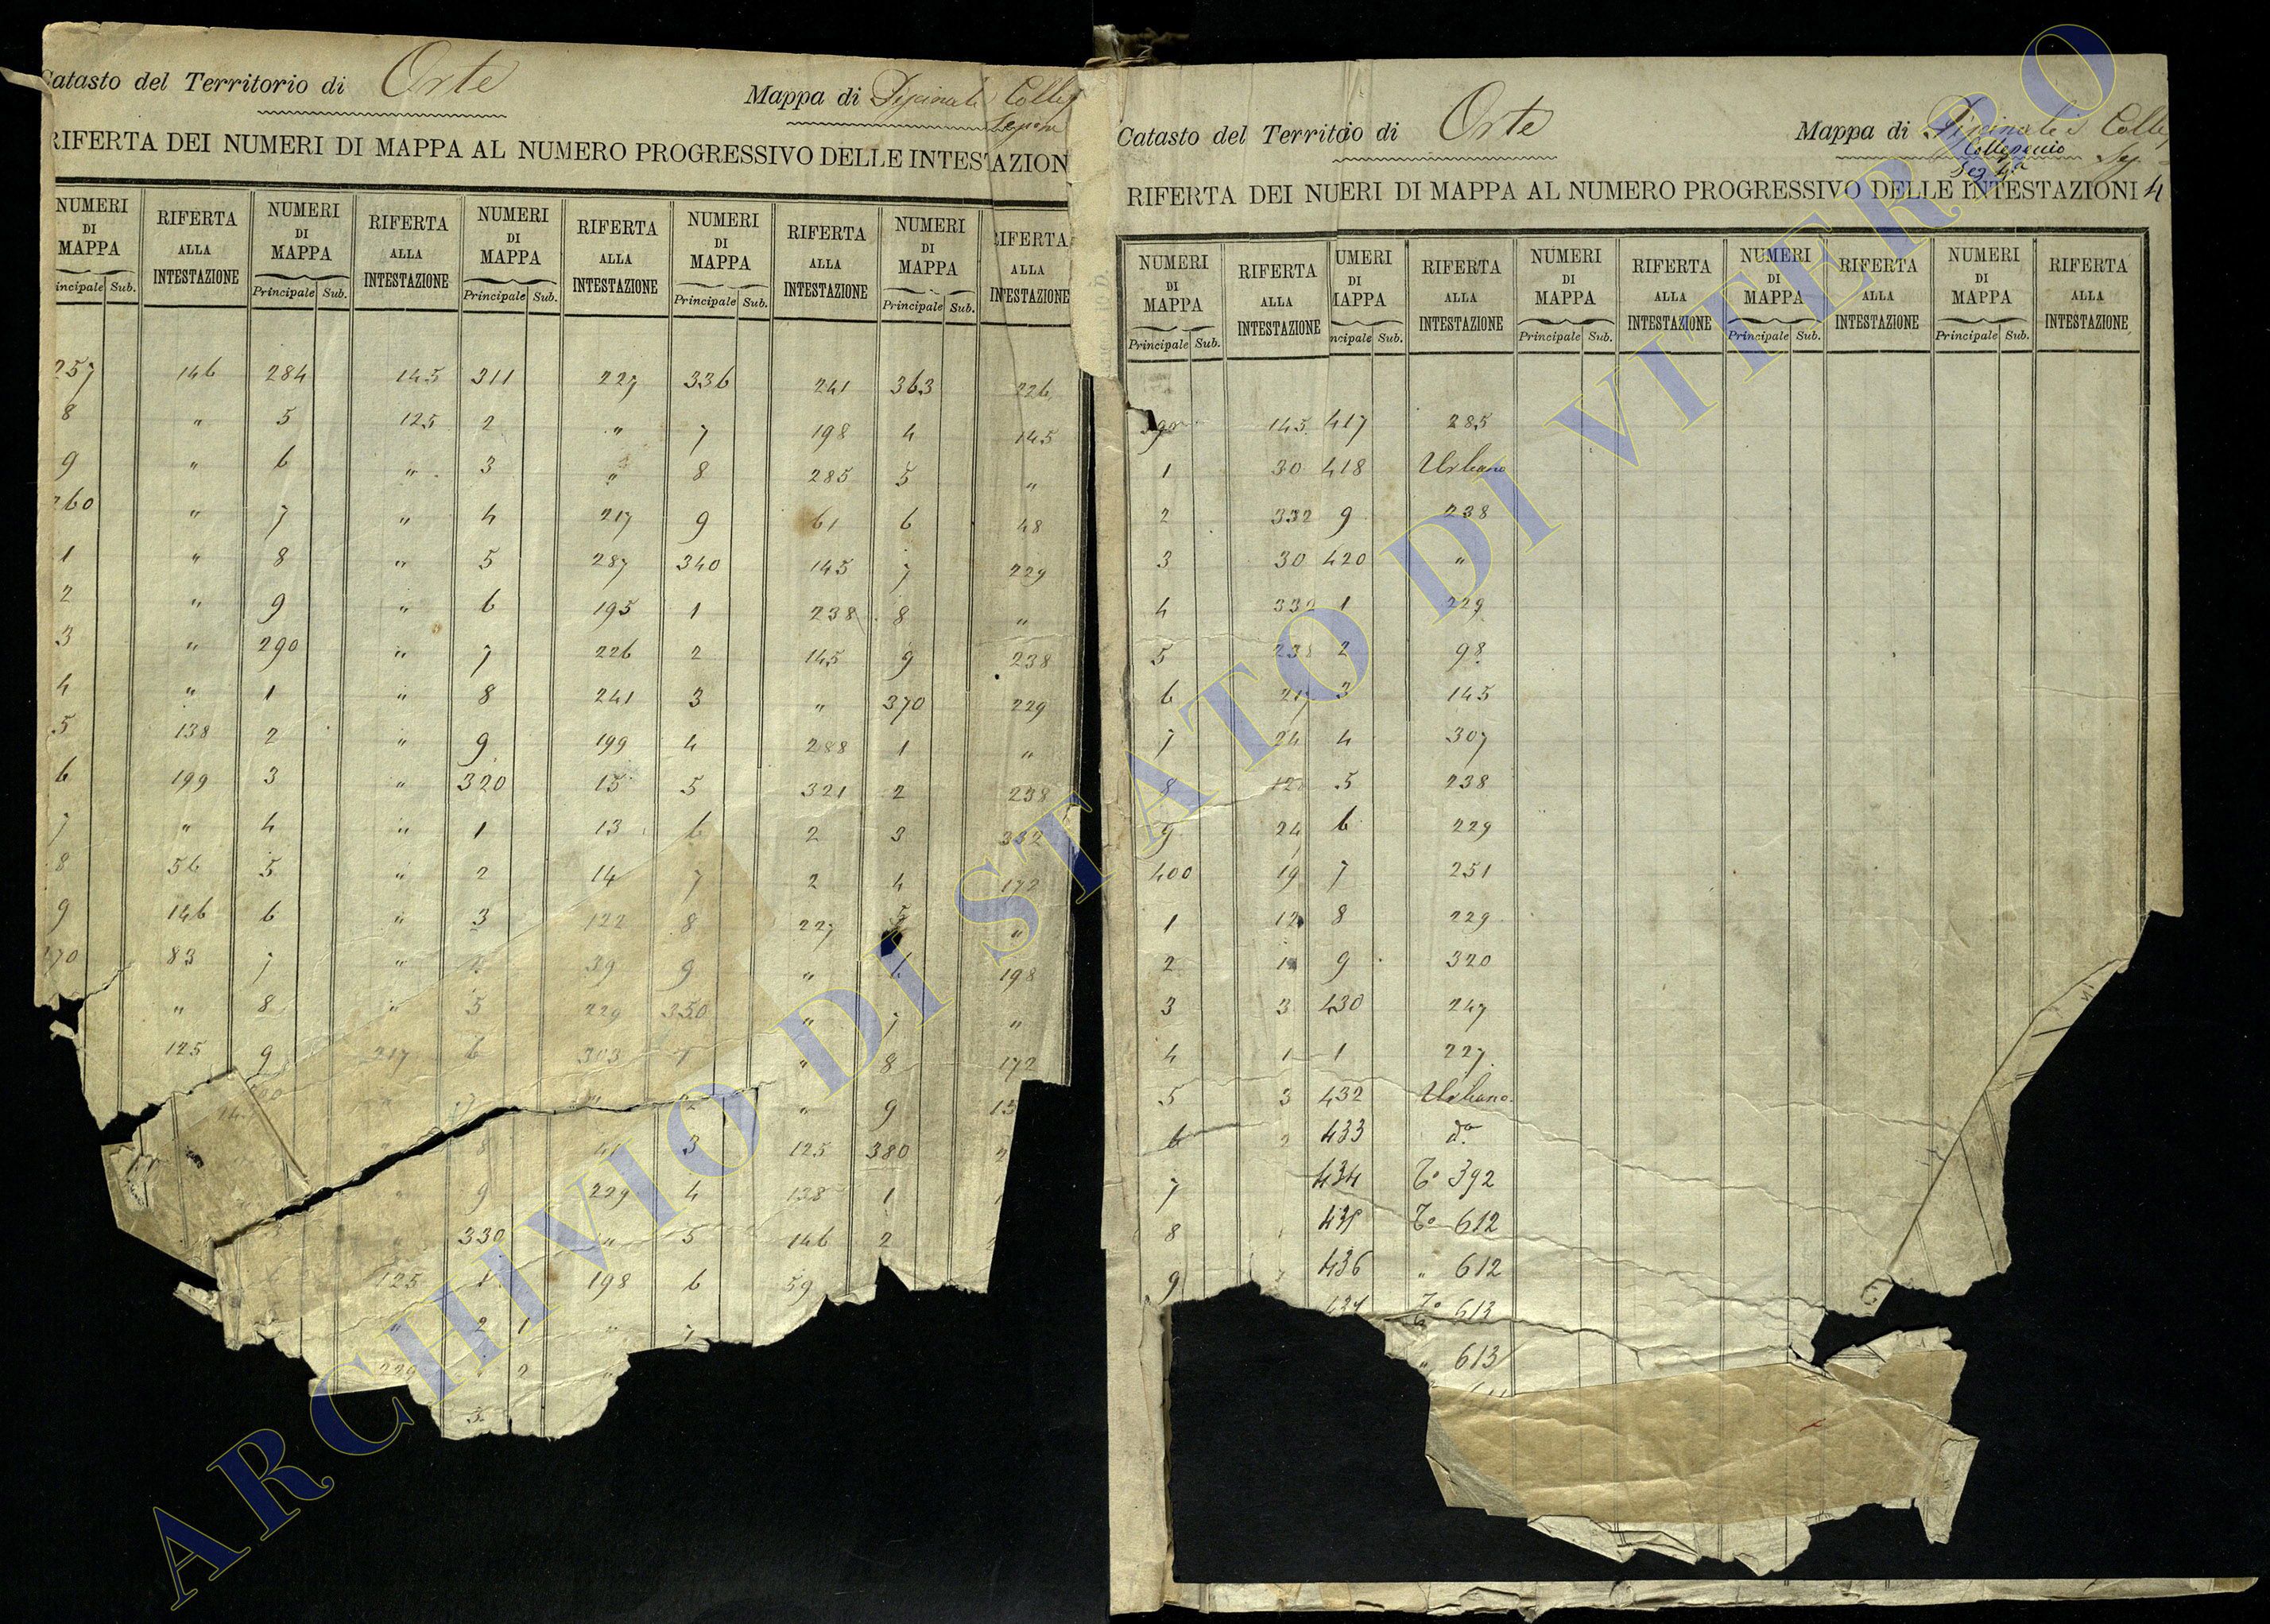 Catasto del Territorio di Orte
Mappa di
RIFERTA DEI NUMERI DI MAPPA AL NUMERO PROGRESSIVO DELLE INTESTAZION
NUMERI DI MAPPA RIFERTA ALLA INTESTAZIONE NUMERI DI MAPPA RIFERTA ALLA INTESTAZIONE NUMERI DI MAPPA RIFERTA ALLA INTESTAZIONE NUMERI DI MAPPA RIFERTA ALLA INTESTAZIONE NUMERI DI MAPPA RIFERTA ALLA INTESTAZIONE
Principale Sub. Principale Sub. Principale Sub. Principale Sub. Principale Sub.
257 146 284 145 311 227 336 241 363 226
8 " 5 125 2 " 7 198 4 145
9 " 6 " 3 " 8 285 5 "
260 " 7 " 4 217 9 61 6 48
1 " 8 " 5 287 340 145 7 229
2 " 9 " 6 195 1 238 8 "
3 " 290 " 7 226 2 145 9 238
4 " 1 " 8 241 3 " 370 229
5 138 2 " 9 199 4 288 1 "
6 199 3 " 320 15 5 321 2 238
7 " 4 " 1 13 6 2 3 332
8 56 5 " 2 14 7 2 4 172
9 146 6 " 3 122 8 227 5 "
70 83 7 " 39 9 " 6 198
" 8 " 5 229 350 " 7 "
125 9 217 6 303 1 " 8 172
2 " 9 15
8 41 3 125 380 2
" 9 229 4 138 1
" 330 " 5 146 2
125 1 198 6 59
" 2 1 " 7
229 2 "
3
Catasto del Territorio di Orte
Mappa di
Collepoccio
Sez 4ª
RIFERTA DEI NUMERI DI MAPPA AL NUMERO PROGRESSIVO DELLE INTESTAZIONI 4
NUMERI DI MAPPA RIFERTA ALLA INTESTAZIONE UMERI DI MAPPA RIFERTA ALLA INTESTAZIONE NUMERI DI MAPPA RIFERTA ALLA INTESTAZIONE NUMERI DI MAPPA RIFERTA ALLA INTESTAZIONE NUMERI DI MAPPA RIFERTA ALLA INTESTAZIONE
Principale Sub. ncipale Sub. Principale Sub. Principale Sub. Principale Sub.
390 145 417 285
1 30 418 Urbano
2 332 9 238
3 30 420 "
4 332 1 229
5 238 2 98
6 217 3 145
7 24 4 307
8 12 5 238
9 24 6 229
400 19 7 251
1 12 8 229
2 1 9 320
3 3 430 247
4 1 1 227
5 3 432 Urbano
6 2 433 dº
7 434 Tº 392
8 435 Tº 612
9 436 " 612
437 Tº 613
" 613
ARCHIVIO DI STATO DI VITERBO